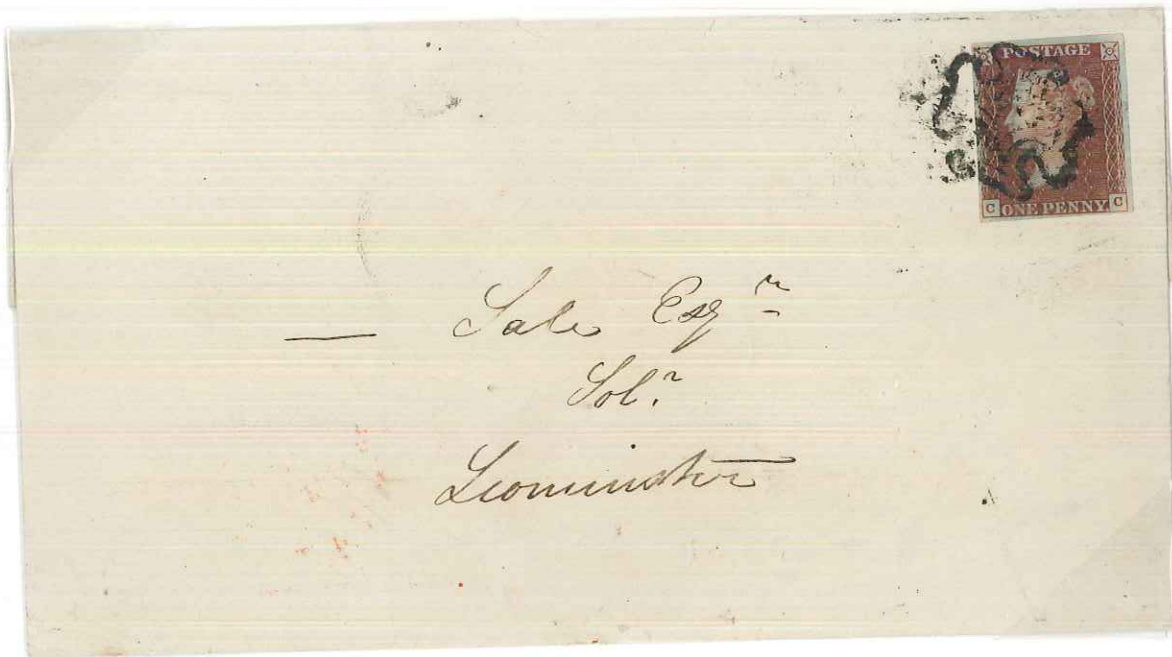 POSTAGE
C ONE PENNY C
— Sale Esqr
Solr
Leominster